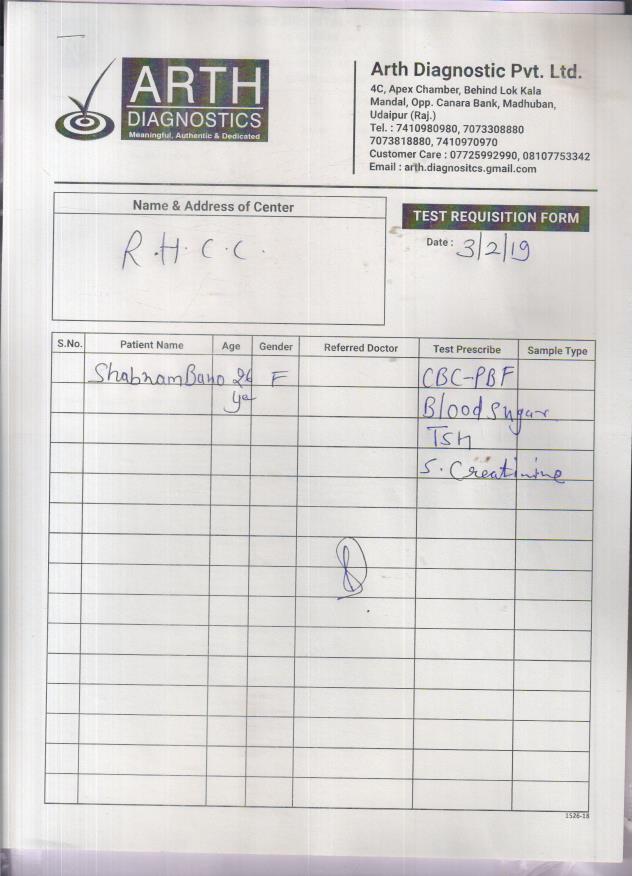 ARTH
DIAGNOSTICS
Meaningful, Authentic & Dedicated
Arth Diagnostic Pvt. Ltd.
4C, Apex Chamber, Behind Lok Kala
Mandal, Opp. Canara Bank, Madhuban,
Udaipur (Raj.)
Tel. : 7410980980, 7073308880
7073818880, 7410970970
Customer Care : 07725992990, 08107753342
Email : arth.diagnositcs.gmail.com
Name & Address of Center
R.H.C.C.
TEST REQUISITION FORM
Date : 3/2/19
S.No. Patient Name Age Gender Referred Doctor Test Prescribe Sample Type
Shabnam Bano 26 F CBC-PBF
Blood Sugar
TSH
S. Creatinine
1526-18